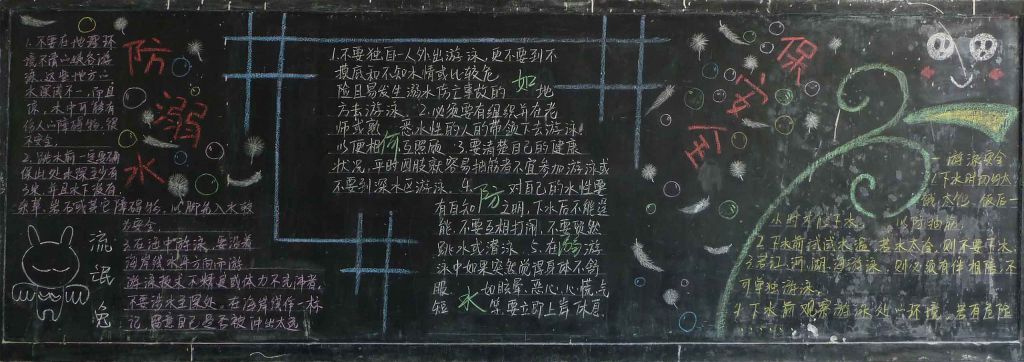 防溺水
保安全
1.不要在地理环
境不清的峡谷游
泳。这些地方的
水深浅不一,而且
凉,水中可能有
伤人的障碍物,很
不安全。
2.跳水前一定要确
保此处水深至少有
3米,并且水下没有
杂草、岩石或其它障碍物,以脚先入水较
为安全。
3.在海中游泳,要沿着
海岸线水平方向而游
游泳技术不精良或体力不充沛者,
不要涉水至深处。在海岸线作一标
记,留意自己是否被冲出太远
流氓兔
如何防溺水
1.不要独自一人外出游泳,更不要到不
摸底和不知水情或比较危
险且易发生溺水伤亡事故的地
方去游泳。2.必须要有组织并在老
师或熟悉水性的人的带领下去游泳。
以便相互照顾 3.要清楚自己的健康
状况,平时四肢就容易抽筋者不宜参加游泳或
不要到深水区游泳。4.对自己的水性要
有自知之明,下水后不能逞
能,不要互相打闹,不要贸然
跳水或潜泳。5.在游
泳中如果突然觉得身体不舒
服,如眩晕、恶心、心慌、气
短等要立即上岸休息
游泳安全
1.下水时切勿太
饿、太饱。饭后一
小时才能下水,以防抽筋
2.下水前试试水温,若水太冷,则不要下水
3.若江、河、湖、海游泳,则必须有伴相陪,不
可单独游泳。
4.下水前观察游泳处环境,若有危险